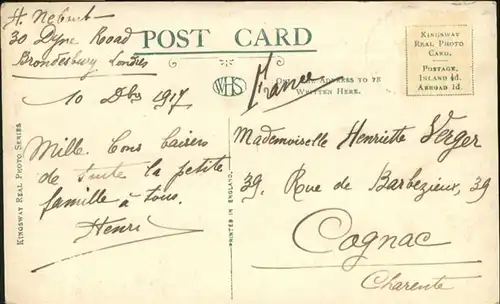 H.
30 Dyne Road
Brondesbury Londres
10 Dbre 1917
POST CARD
WHS
France
ONLY THE ADDRESS TO BE
WRITTEN HERE.
KINGSWAY
REAL PHOTO
CARD.
POSTAGE,
INLAND ½d.
ABROAD 1d.
KINGSWAY REAL PHOTO SERIES
Mille Bons baisers
de toute la petite
famille à tous.
Henri
PRINTED IN ENGLAND.
Mademoiselle Henriette Verger
39, Rue de Barbezieux, 39
Cognac
Charente